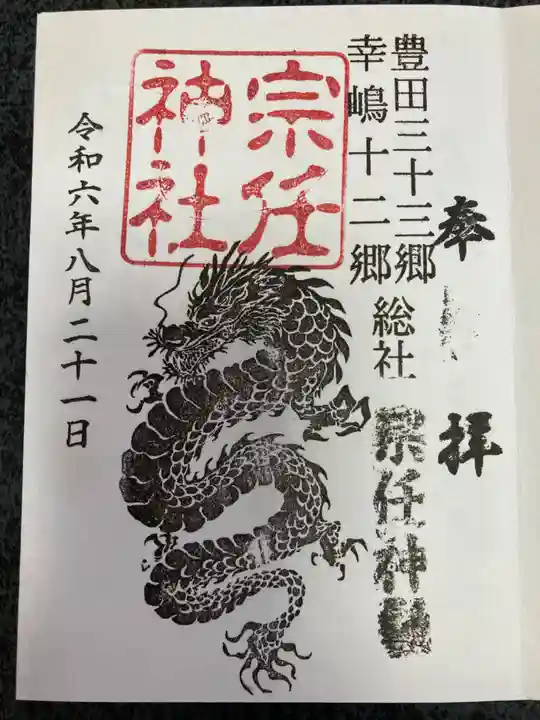 奉
拝
豊田三十三郷
幸嶋十二郷
総社
宗任神社
宗任
神社
令和六年八月二十一日